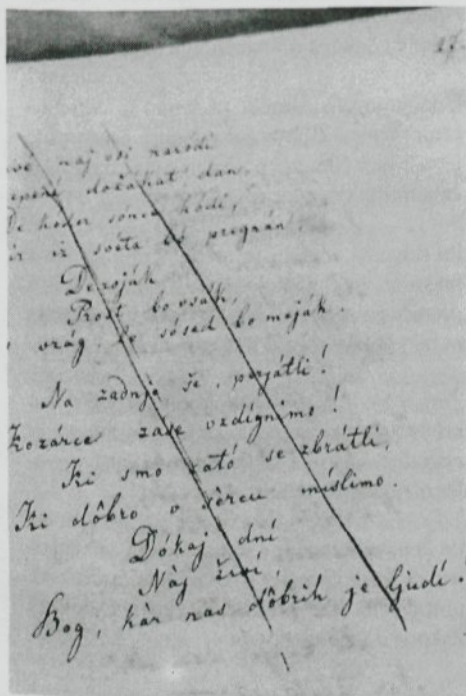 naj vsi narodi
dočákat' dan,
De koder sónce hódi,
iz svéta bo pregnán!
De roják
Prost bo vsák,
vrág le sósed bo meják
Na zadnje še, perjátli!
Kozárce zase vzdígnimo!
Ki smo zató se zbrátli,
Ki dôbro v sèrcu míslimo.
Dókaj dní
Nàj živí
Bog, kàr nas dôbrih je ljudí!